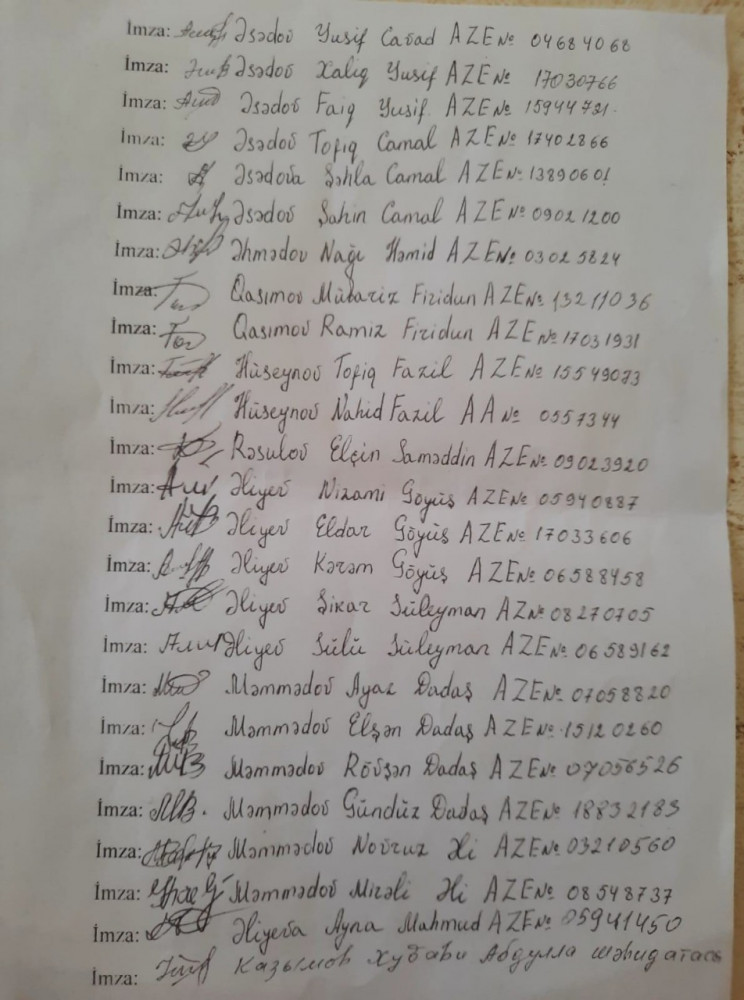 İmza: Əsədov Yusif Cavad AZE № 04684068
İmza: Əsədov Xaliq Yusif AZE № 17030766
İmza: Əsədov Faiq Yusif AZE № 15944721.
İmza: Əsədov Tofiq Camal AZE № 17402866
İmza: Əsədova Şəhla Camal AZE № 13890601
İmza: Əsədov Şahin Camal AZE № 09021200
İmza: Əhmədov Nağı Həmid AZE № 03025824
İmza: Qasımov Mübariz Firidun AZE № 13211036
İmza: Qasımov Ramiz Firidun AZE № 17031931
İmza: Hüseynov Tofiq Fazil AZE № 15549073
İmza: Hüseynov Nahid Fazil AA № 0557344
İmza: Rəsulov Elçin Səməddin AZE № 09023920
İmza: Əliyev Nizami Göyüş AZE № 05940887
İmza: Əliyev Eldar Göyüş AZE № 17033606
İmza: Əliyev Kərəm Göyüş AZE № 06588458
İmza: Əliyev Süleyman AZ № 08270705
İmza: Əliyev Süleyman AZE № 06589162
İmza: Məmmədov Ayaz Dadaş AZE № 07058820
İmza: Məmmədov Elşən Dadaş AZE № 15120260
İmza: Məmmədov Rövşən Dadaş AZE № 07056526
İmza: Məmmədov Gündüz Dadaş AZE № 18832183
İmza: Məmmədov Novruz Əli AZE № 03210560
İmza: Məmmədov Mirəli Əli AZE № 08548737
İmza: Əliyeva Ayna Mahmud AZE № 05941450
İmza: Казымов Худави Абдулла шәһид атасы